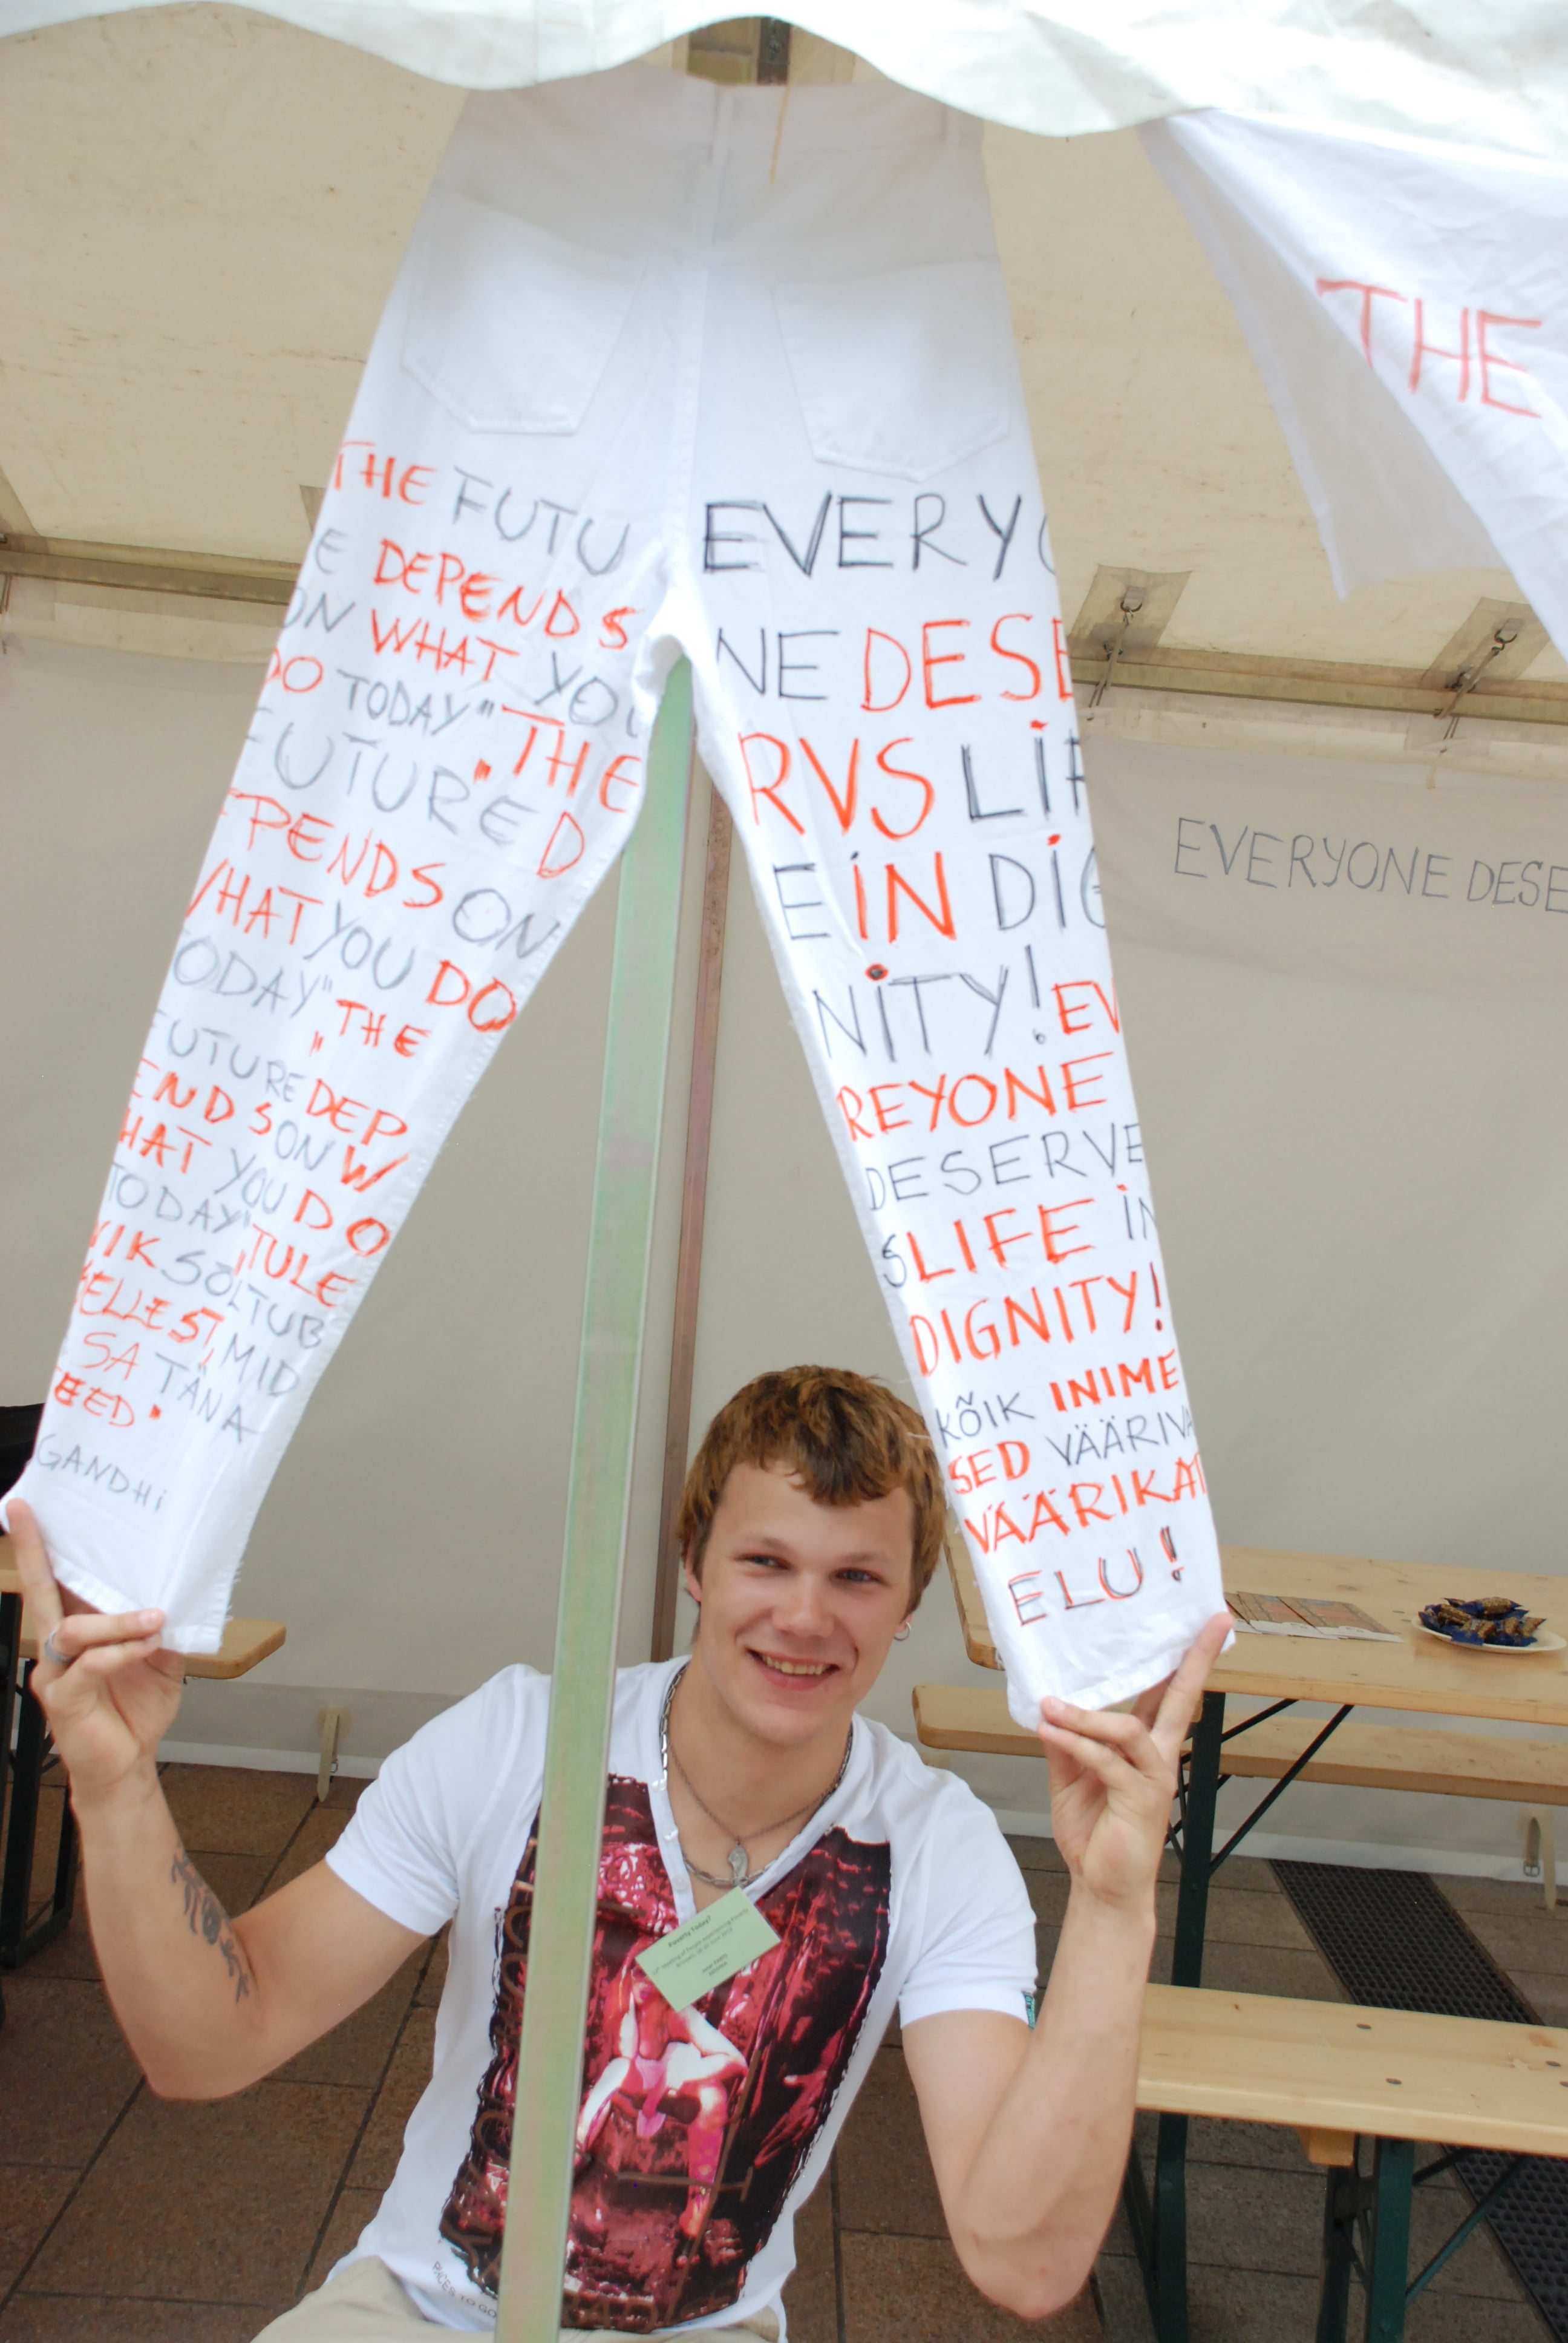 THE FUTU
E DEPENDS
ON WHAT YOU
DO TODAY" "THE
FUTURE D
EPENDS ON
WHAT YOU DO
TODAY" "THE
FUTURE DEP
ENDS ON W
HAT YOU DO
TODAY" "TULE
VIK SÕLTUB
SELLEST, MID
SA TÄNA
TEED"
GANDHi
EVERYO
NE DESE
RVS LiF
E iN DiG
NiTY! EV
REYONE
DESERVE
S LIFE iN
DIGNITY!
KÕIK INIME
SED VÄÄRIVA
VÄÄRIKAT
ELU!
THE
EVERYONE DESE
Poverty Today?